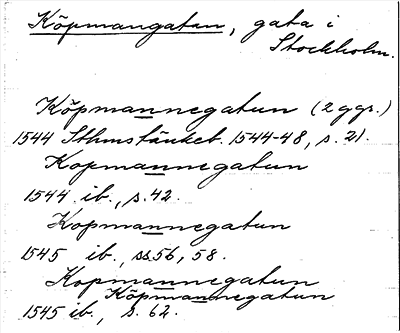 Köpmangatan, gata i
Stockholm.
Köpmannegatun (2 ggr.)
1544 Sthmstänkeb. 1544-48, s. 21.
Kopmannegatun
1544 ib., s. 42.
Kopmannegatun
1545 ib., ss. 56, 58.
Kopmannegatun
Köpmannegatun
1545 ib., s. 62.